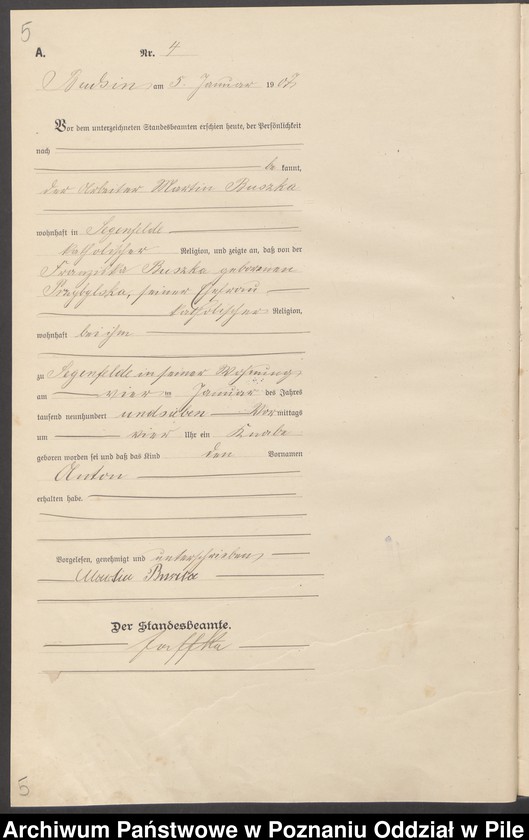 5
A. Nr. 4
Budsin am 5. Januar 1907
Vor dem unterzeichneten Standesbeamten erschien heute, der Persönlichkeit
nach
be kannt,
der Arbeiter Martin Buszka
wohnhaft in Segenfelde
katholischer Religion, und zeigte an, daß von der
Franziska Buszka geborenen
Przybylska, seiner Ehefrau
katholischer Religion,
wohnhaft bei ihm
zu Segenfelde in seiner Wohnung
am vier Januar des Jahres
tausend neunhundert und sieben Vor mittags
um vier Uhr ein Knabe
geboren worden sei und daß das Kind den Vornamen
Anton
erhalten habe.
Vorgelesen, genehmigt und unterschrieben
Martin
Der Standesbeamte.
5
Archiwum Państwowe w Poznaniu Oddział w Pile